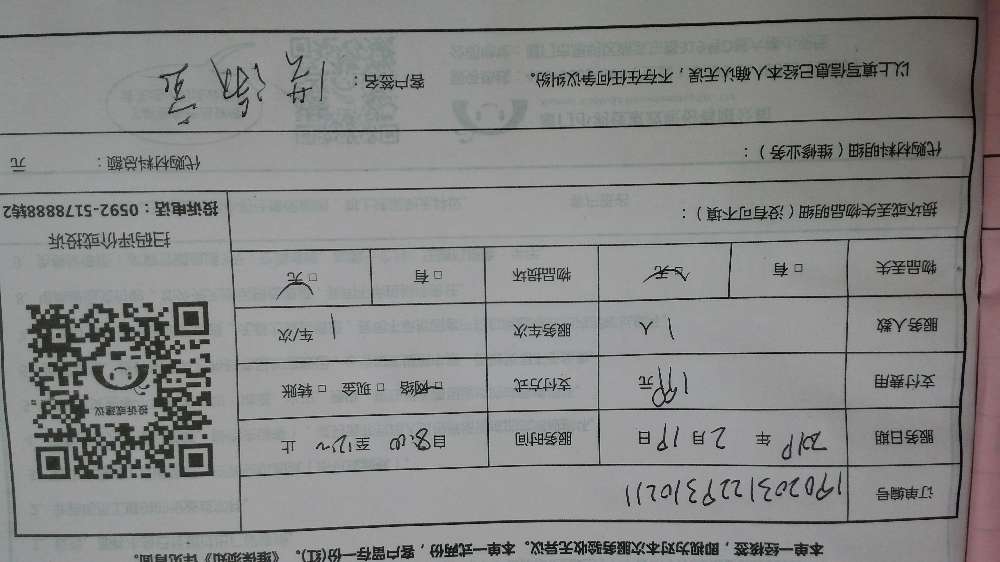 本单一经核签，即视为对本次服务验收无异议。本单一式两份，客户留存一份(红)。《维保须知》详见背面。
订单编号 1902031229310211
服务日期 2019 年 2 月 19 日 服务时间 自 8:00 至 12:~ 止
支付费用 199 元 支付方式 □ 网络 □ 现金 □ 转账
服务人数 1 人 服务车次 1 车/次
物品丢失 □ 有 □ 无 物品损坏 □ 有 □ 无
损坏或丢失物品明细（没有可不填）：
投诉或建议
扫码评价或投诉
投诉电话：0592-5178888转2
代购材料明细（维修业务）： 代购材料总额： 元
以上填写信息已经本人确认无误，不存在任何争议纠纷。 客户签名：